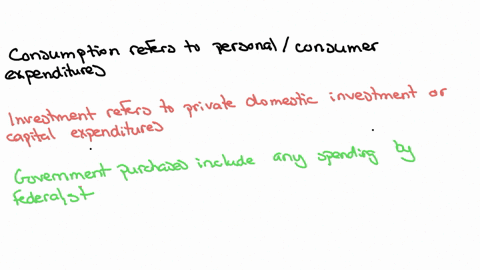 Consumption refers to personal/consumer
expenditures
Investment refers to private domestic investment or
capital expenditures
Government purchases include any spending by
federal,st